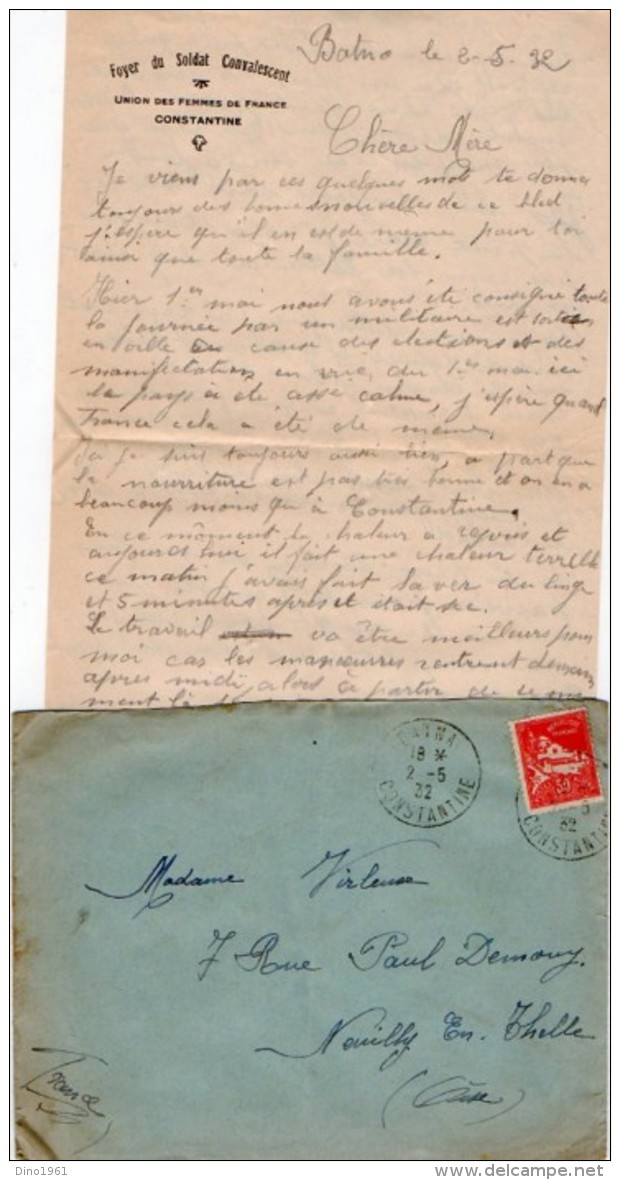 Foyer du Soldat Convalescent
UNION DES FEMMES DE FRANCE
CONSTANTINE
Batna le 2-5-32
Chère Mère
Je viens par ces quelques mots te donner
toujours des bonnes nouvelles de ce bled
j'espère qu'il en est de meme pour toi
ainsi que toute la famille.
Hier 1er mai nous avons été consigné toute
la journée pas un militaire est
en ville cause des elections et des
manifestations en vue du 1er mai. ici
le pays a été assé calme, j'espère quand
France cela a été de meme.
je suis toujours aussi bien, a part que
la nourriture est pas très bonne et on en a
beaucoup moins qu'à Constantine.
En ce moment la chaleur a repris et
aujourd hui il fait une chaleur terrible
ce matin j'avais fait laver du linge
et 5 minutes après et était sec.
Le travail va être meilleurs pour
moi car les manœuvres rentrent demain
après midi, alors à partir de ce mo
ment là
BATNA
18 *
2 -5
32
CONSTANTINE
32
CONSTANTINE
Madame Virleuse
7 Rue Paul Demouy.
Neuilly En. Thelle
(Oise)
France
Dino1961